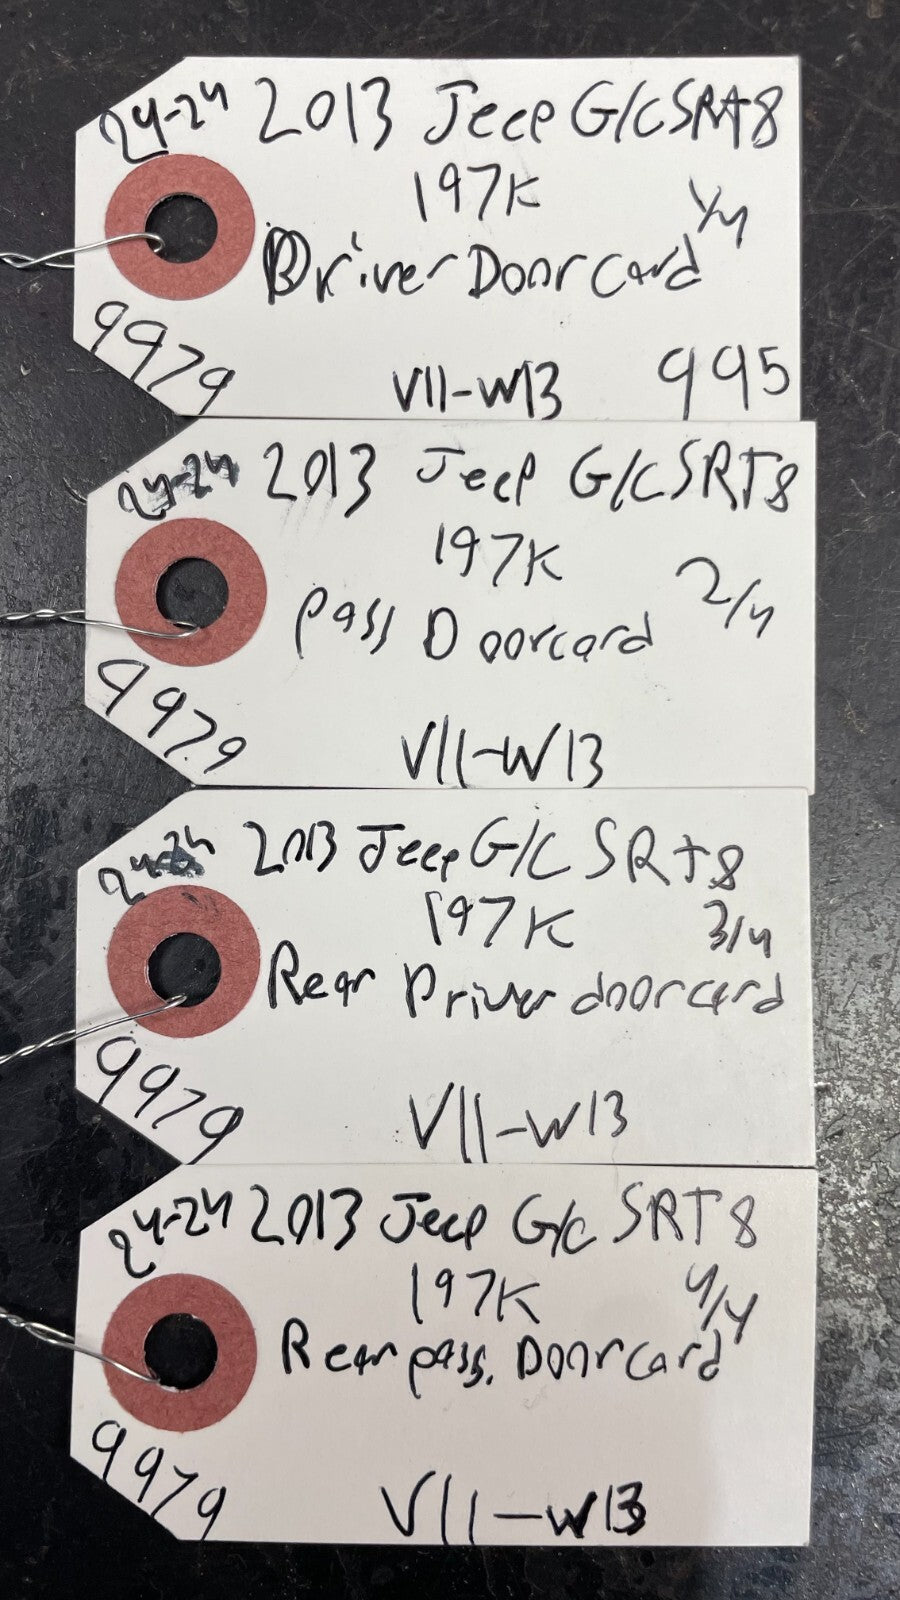 24-24 2013 Jeep G/C SRT8
197K 1/4
Driver Door Card
9979 V11-W13 995
24-24 2013 Jeep G/C SRT8
197K 2/4
Pass Doorcard
9979 V11-W13
24-24 2013 Jeep G/C SRT8
197K 3/4
Rear Driver door card
9979 V11-W13
24-24 2013 Jeep G/C SRT8
197K 4/4
Rear pass. Door Card
9979 V11-W13